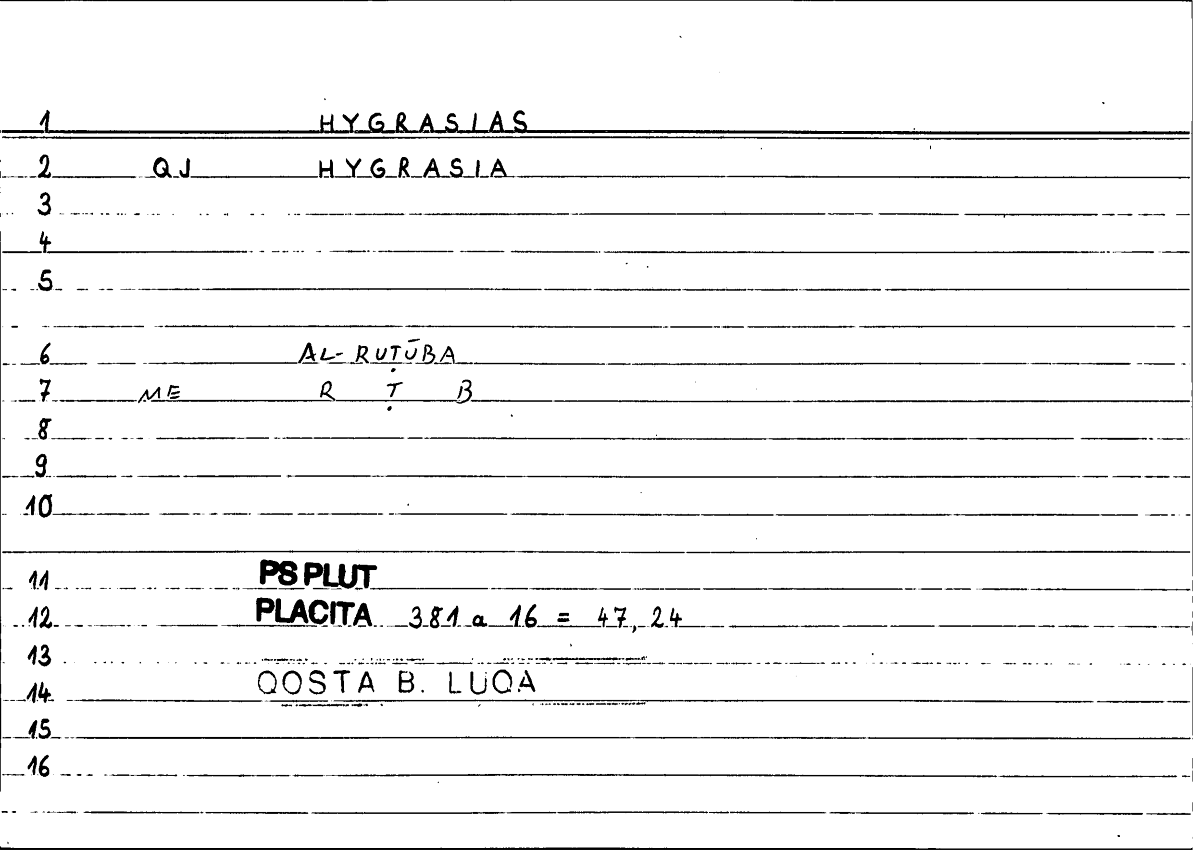 1 HYGRASIAS
2 QJ HYGRASIA
3
4
5
6 AL-RUṬŪBA
7 ME R Ṭ B
8
9
10
11 PS PLUT
12 PLACITA 381 a 16 = 47, 24
13
14 QOSTA B. LUQA
15
16